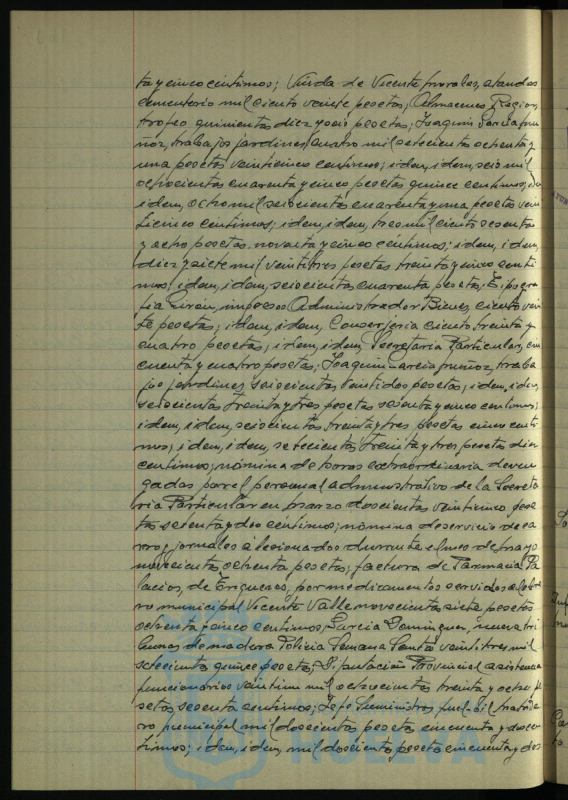 ta y cinco céntimos; Viuda de Vicente Morales, ataudes
cementerio mil ciento veinte pesetas; Almacenes Region,
trofeo quinientas diez y seis pesetas; Joaquín García Mu
ñoz, trabajos jardines, cuatro mil setecientas ochenta y
una pesetas veinticinco céntimos; idem, idem, seis mil
ochocientas cuarenta y cinco pesetas quince céntimos;
idem, ocho mil seiscientas cuarenta y una pesetas vein
ticinco céntimos; idem, idem, tres mil ciento sesenta
y ocho pesetas noventa y cinco céntimos; idem, idem,
diez y siete mil veintitres pesetas treinta y cinco cénti
mos; idem, idem, seiscientas cuarenta pesetas; Tipogra
fía Girón, impresos Administrador Bienes, ciento vein
te pesetas; idem, idem, Conserjería ciento treinta y
cuatro pesetas; idem, idem, Secretaría Particular, cin
cuenta y cuatro pesetas; Joaquín García Muñoz, traba
jos jardines seiscientas veintidos pesetas; idem, idem,
seiscientas treinta y tres pesetas sesenta y cinco céntimos;
idem, idem, seiscientas treinta y tres pesetas cinco cénti
mos; idem, idem, setecientas treinta y tres pesetas diez
céntimos; nómina de horas extraordinaria deven
gadas por el personal administrativo de la Secreta
ria Particular en marzo doscientas veinticinco pese
tas setenta y dos céntimos; nómina de servicio de ca
rros y jornales a lesionados durante el mes de mayo
novecientas ochenta pesetas; factura de Farmacia Pa
lacios, de Trigueros, por medicamentos servidos al obre
ro municipal Vicente Valle novecientas siete pesetas
ochenta y cinco céntimos; García Dominguez, nueva tri
bunas de madera Policía Semana Santa veintitres mil
setecientas quince pesetas; Diputación Provincial asistencia
funcionarios veintiun mil ochocientas treinta y ocho pe
setas sesenta céntimos; Jefe Suministros fuel-oil
ro municipal mil doscientas pesetas cincuenta y dos cén
timos; idem, idem, mil doscientas pesetas cincuenta y dos
HUELVA